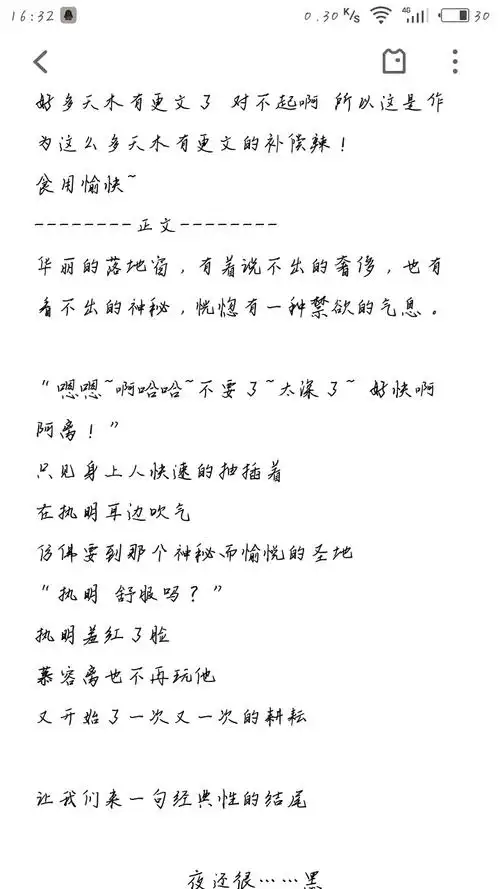 16:32 0.30 K/s 4G 30
好多天木有更文了 对不起啊 所以这是作
为这么多天木有更文的补偿辣！
食用愉快~
--------正文--------
华丽的落地窗，有着说不出的奢侈，也有
看不出的神秘，恍惚有一种禁欲的气息。
“嗯嗯~啊哈哈~不要了~太深了~ 好快啊
阿离！”
只见身上人快速的抽插着
在执明耳边吹气
仿佛要到那个神秘而愉悦的圣地
“执明 舒服吗？”
执明羞红了脸
慕容离也不再玩他
又开始了一次又一次的耕耘
让我们来一句经典性的结尾
夜还很……黑